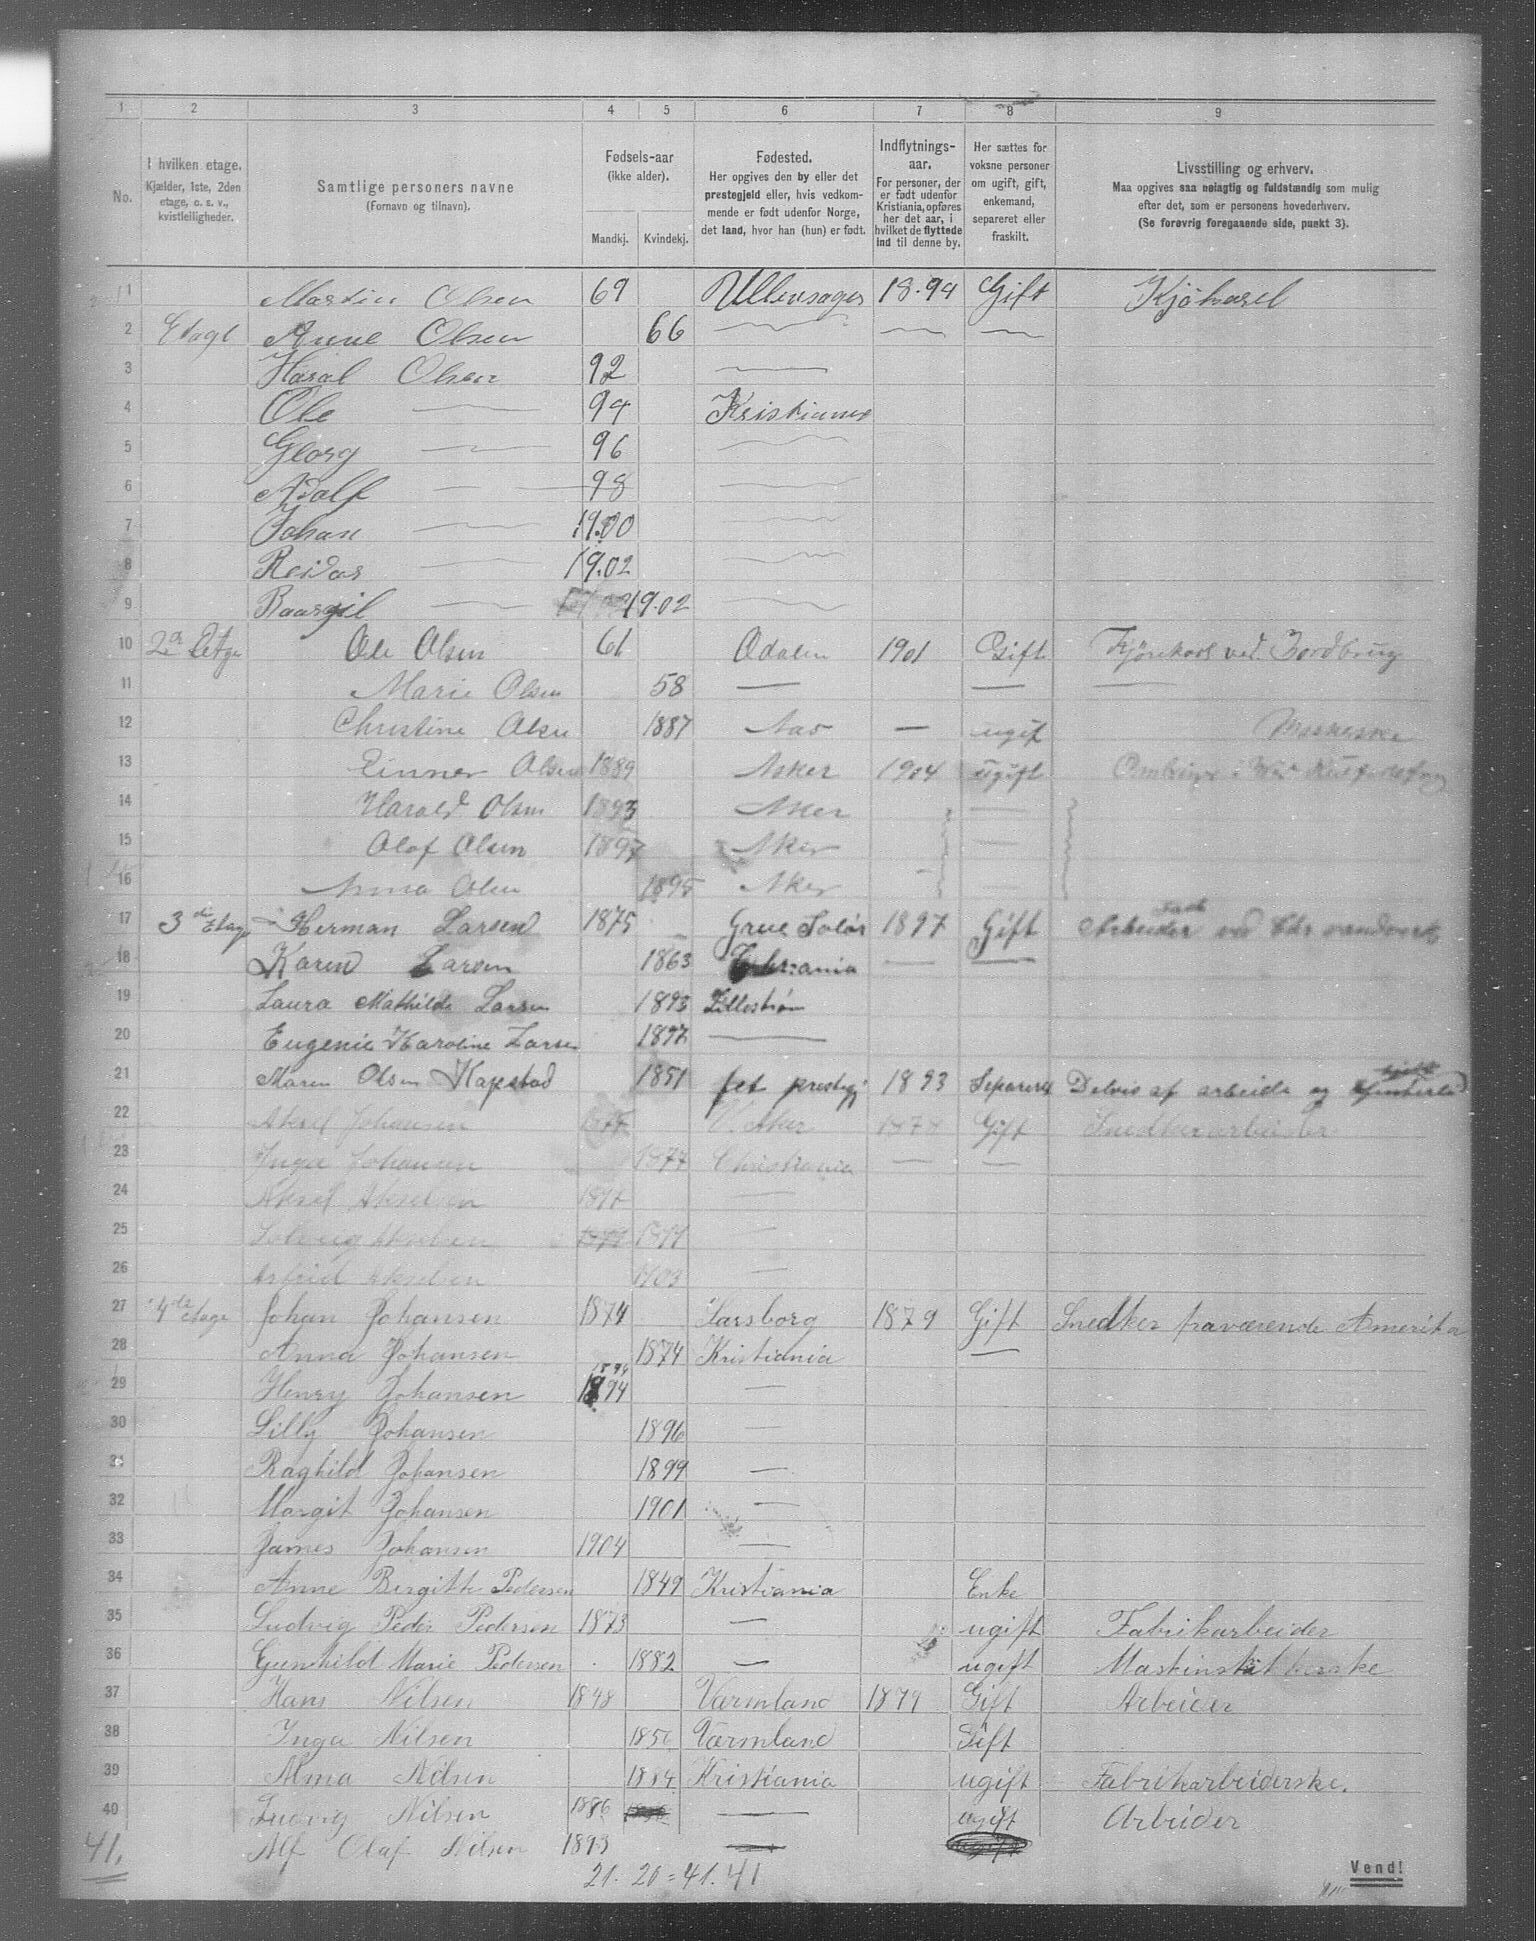 1 2 3 4 5 6 7 8 9
No.
I hvilken etage.
Kjælder, 1ste, 2den
etage, o. s. v.,
kvistleiligheder.
Samtlige personers navne
(Fornavn og tilnavn).
Fødsels-aar
(ikke alder).
Mandkj. Kvindekj.
Fødested.
Her opgives den by eller det
prestegjeld eller, hvis vedkom-
mende er født udenfor Norge,
det land, hvor han (hun) er født.
Indflytnings-
aar.
For personer, der
er født udenfor
Kristiania, opføres
her det aar, i
hvilket de flyttede
ind til denne by.
Her sættes for
voksne personer
om ugift, gift,
enkemand,
separeret eller
fraskilt.
Livsstilling og erhverv.
Maa opgives saa nøiagtig og fuldstændig som mulig
efter det, som er personens hovederhverv.
(Se forøvrig foregaaende side, punkt 3).
1 Martin Olsen 69 Ullensager 18.94 Gift Kjökarel
2 Etage Anne Olsen 66 — — —
3 Haral Olsen 92 —
4 Ole — 94 Kristiania
5 Georg — 96 —
6 Adolf — 98 —
7 Johan — 19.00 —
8 Reidar — 19.02 —
9 — 19.02 —
10 2a Etge Ole Olsen 61 Odalen 1901 Gift Kjörekarl ved Jordbrug
11 Marie Olsen 58 — — —
12 Christine Olsen 1887 — ugift
13 Einner Olsen 1889 Asker 1904 ugift
14 Harald Olsen 1893 Asker —
15 Olaf Olsen 1897 Aker —
16 Anna Olsen 1895 Aker —
17 3die Etage Herman Larsen 1875 Grue Solør 1897 Gift Arbeider ved
18 Karen Larsen 1863 — —
19 Laura Mathilde Larsen 1893 Lillestrøm
20 Eugenie Karoline Larsen 1897 —
21 Maren Olsen Kapstad 1851 fet prestegj 1893 Separeret Delvis af arbeide og
22 Aksel Johansen 1877 V. Aker 1878 Gift Snedkerarbeider
23 Inga Johansen 1877 Christiania — —
24 Aksel Akselsen 1897 —
25 Solveig Akselsen 1899 —
26 Astrid Akselsen 1903 —
27 4de etage Johan Johansen 1874 Sarsborg 1879 Gift Snedker fraværende Amerika
28 Anna Johansen 1874 Kristiania —
1894
29 Henry Johansen 1894 —
30 Lilly Johansen 1896 —
31 Raghild Johansen 1899 —
32 Margit Johansen 1901 —
33 James Johansen 1904 —
34 Anne Birgitte Pedersen 1849 Kristiania Enke
35 Ludvig Peder Pedersen 1873 — ugift Fabrikarbeider
36 Gunhild Marie Pedersen 1882 — ugift
37 Hans Nilsen 1848 Värmland 1879 Gift Arbeider
38 Inga Nilsen 1856 Värmland Gift
39 Alma Nilsen 1884 Kristiania ugift Fabrikarbeiderske.
40 Ludvig Nilsen 1886 — ugift Arbeider
41. Alf Olaf Nilsen 1893 —
21. 20 = 41. 41
Vend!